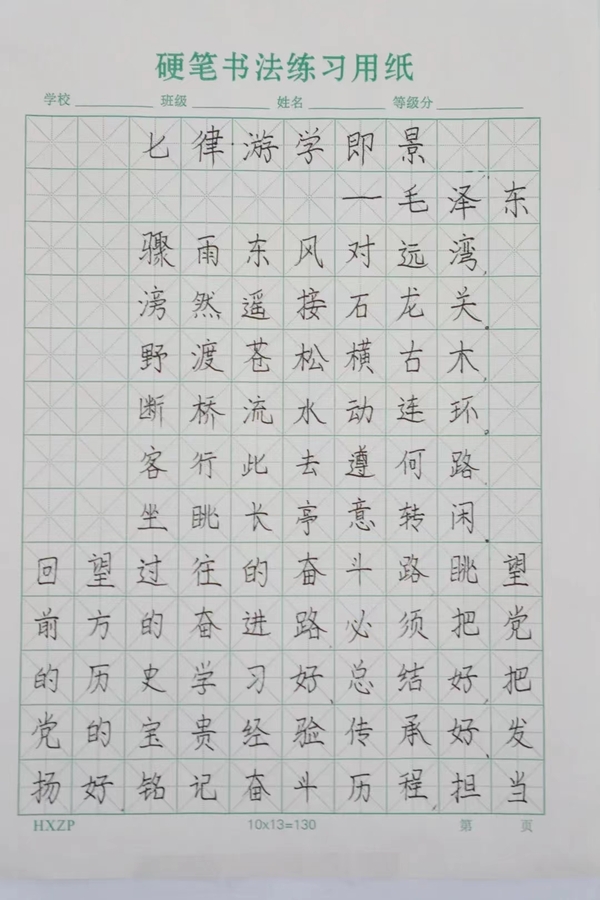 硬笔书法练习用纸
学校 班级 姓名 等级分
七律·游学即景
一毛泽东
骤雨东风对远湾,
滂然遥接石龙关。
野渡苍松横古木,
断桥流水动连环。
客行此去遵何路,
坐眺长亭意转闲。
回望过往的奋斗路眺望
前方的奋进路,必须把党
的历史学习好,总结好,把
党的宝贵经验传承好,发
扬好.铭记奋斗历程,担当
HXZP 10x13=130 第 页